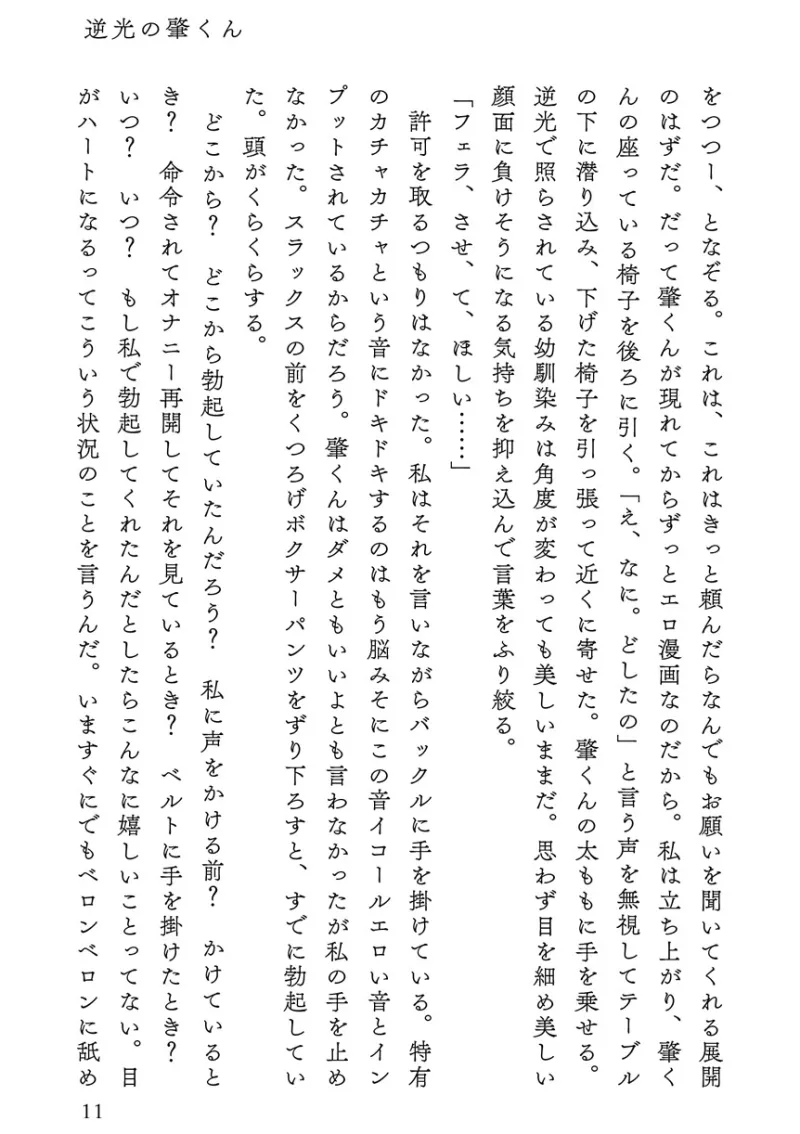 逆光の肇くん
をつつー、となぞる。これは、これはきっと頼んだらなんでもお願いを聞いてくれる展開
のはずだ。だって肇くんが現れてからずっとエロ漫画なのだから。私は立ち上がり、肇く
んの座っている椅子を後ろに引く。「え、なに。どしたの」と言う声を無視してテーブル
の下に潜り込み、下げた椅子を引っ張って近くに寄せた。肇くんの太ももに手を乗せる。
逆光で照らされている幼馴染みは角度が変わっても美しいままだ。思わず目を細め美しい
顔面に負けそうになる気持ちを抑え込んで言葉をふり絞る。
「フェラ、させ、て、ほしい……」
許可を取るつもりはなかった。私はそれを言いながらバックルに手を掛けている。特有
のカチャカチャという音にドキドキするのはもう脳みそにこの音イコールエロい音とイン
プットされているからだろう。肇くんはダメともいいよとも言わなかったが私の手を止め
なかった。スラックスの前をくつろげボクサーパンツをずり下ろすと、すでに勃起してい
た。頭がくらくらする。
どこから？　どこから勃起していたんだろう？　私に声をかける前？　かけていると
き？　命令されてオナニー再開してそれを見ているとき？　ベルトに手を掛けたとき？
いつ？　いつ？　もし私で勃起してくれたんだとしたらこんなに嬉しいことってない。目
がハートになるってこういう状況のことを言うんだ。いますぐにでもベロンベロンに舐め
11